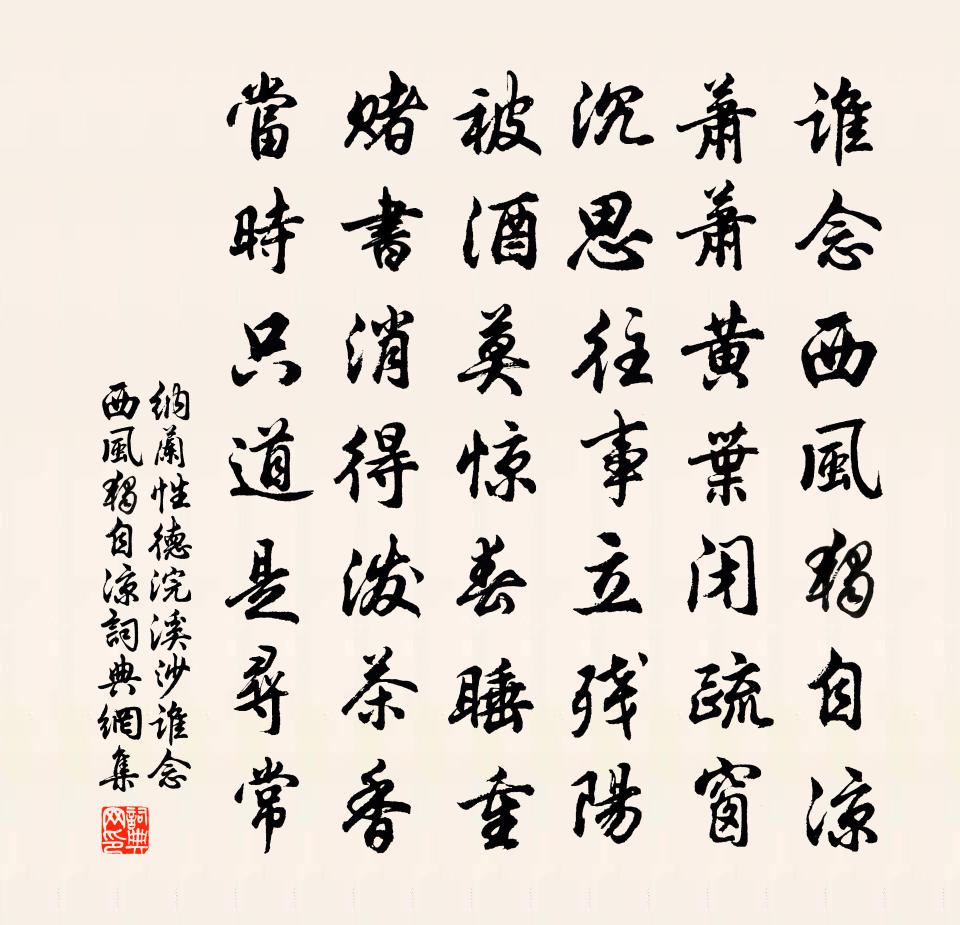 谁念西風獨自凉
蕭蕭黄葉闭疏窗
沉思往事立残陽
被酒莫惊春睡重
赌書消得泼茶香
當時只道是尋常
纳蘭性德浣溪沙谁念
西風獨自凉詞典網集
詞典
网印